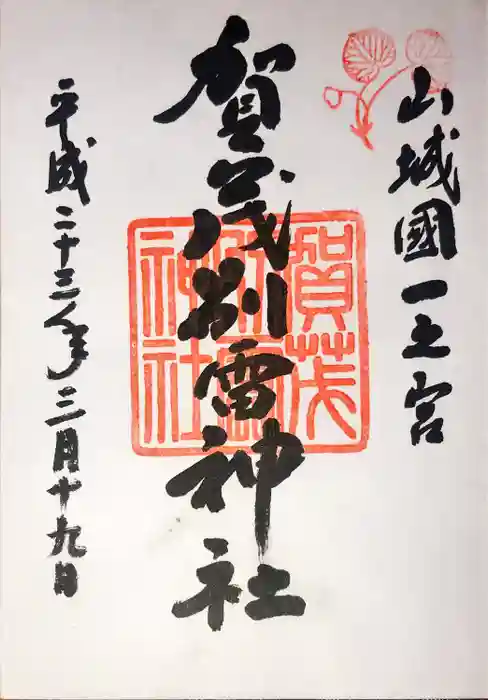 山城國一之宮
賀茂別雷神社
平成二十三年三月十九日
賀茂
別雷
神社